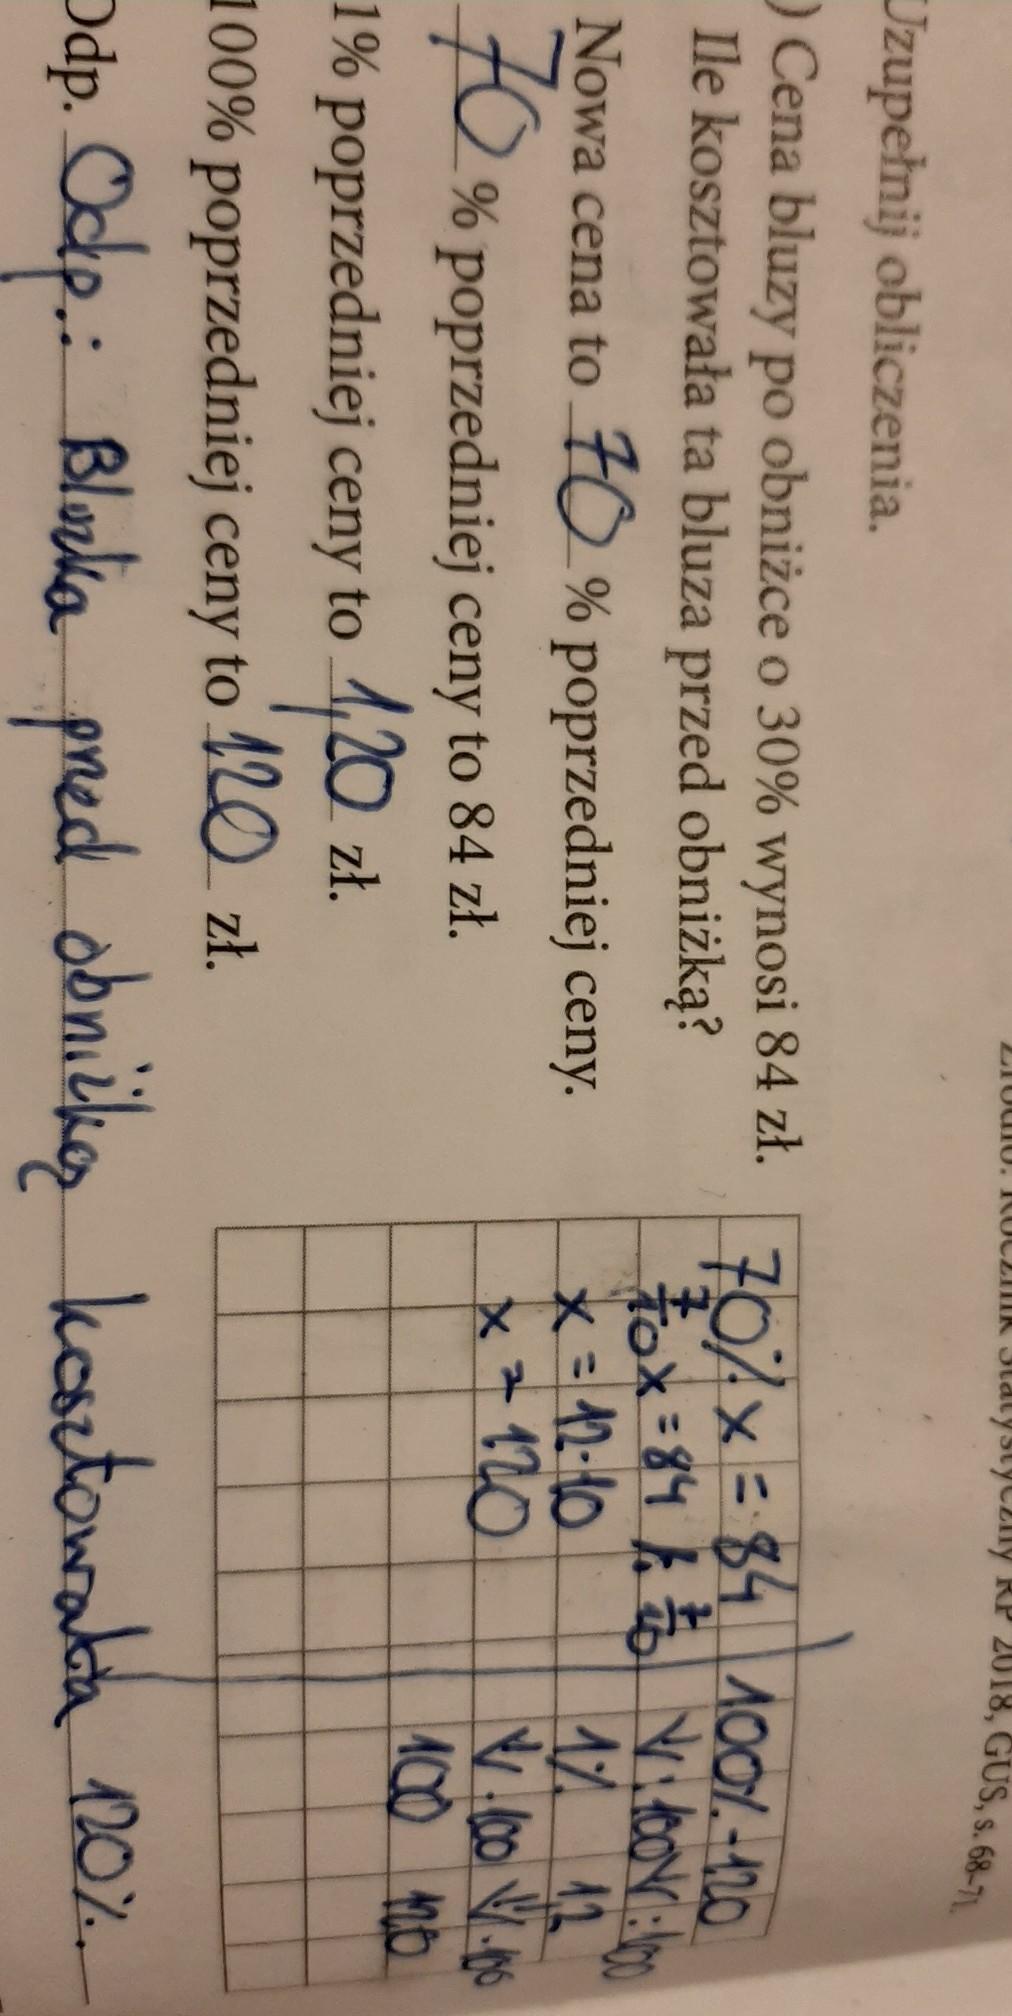 Źródło: Rocznik Statystyczny RP 2018, GUS, s. 68–71.
Uzupełnij obliczenia.
) Cena bluzy po obniżce o 30% wynosi 84 zł.
Ile kosztowała ta bluza przed obniżką?
Nowa cena to 70 % poprzedniej ceny.
70 % poprzedniej ceny to 84 zł.
1% poprzedniej ceny to 1,20 zł.
100% poprzedniej ceny to 120 zł.
Odp. Odp.: Bluzka przed obniżką kosztowała 120%.
70% x = 84
7/10 x = 84 /: 7/10
x = 12·10
x = 120
100% - 120
↓:100 ↓:100
1% 1,2
↓·100 ↓·100
100 120